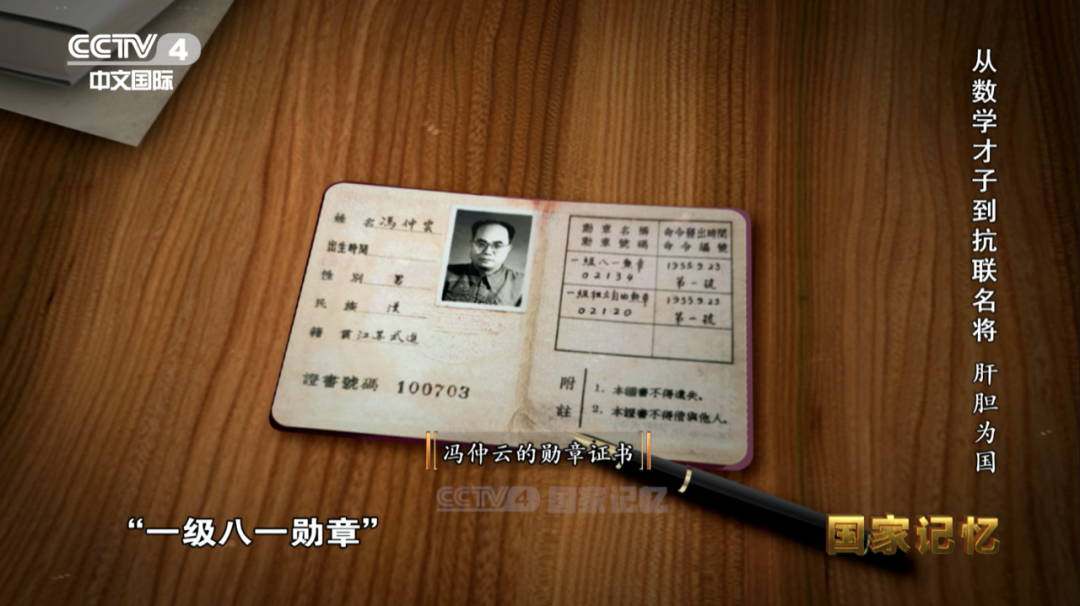 CCTV 4
中文国际
从数学才子到抗联名将 肝胆为国
姓 名 馮仲雲
出生時間
性 别 男
民 族 漢
籍 貫 江苏武进
證書號碼 100703
勳章名稱 命令發出時間
勳章號碼 命令編號
一级八一勲章 1955.9.23
02134 第一號
一级独立自由勲章 1955.9.23
02120 第一號
附註
1. 本證書不得遺失。
2. 本證書不得借與他人。
冯仲云的勋章证书
CCTV4 国家记忆
“一级八一勋章”
国家记忆